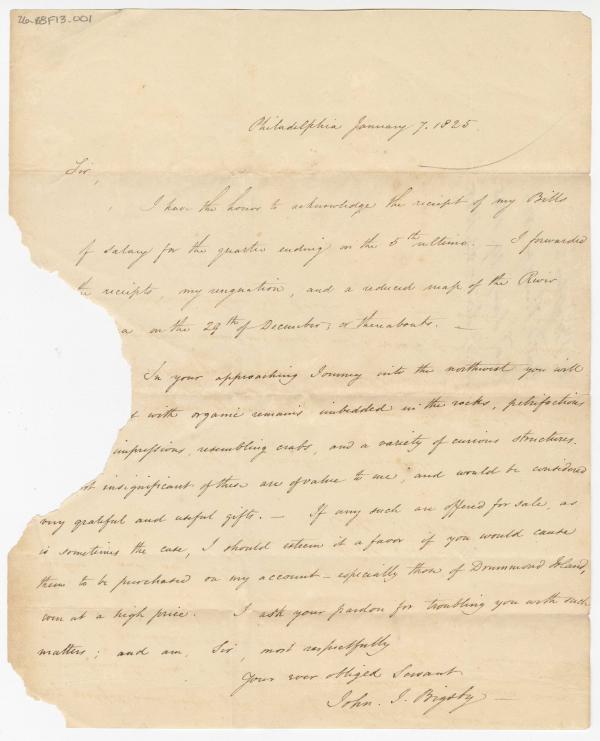 26-RBF13-001
Philadelphia January 7. 1825.
Sir,
I have the honor to acknowledge the receipt of my Bills
of salary for the quarter ending on the 5th ultimo. — I forwarded
the receipts, my resignation, and a reduced map of the River
a on the 29th of December; or thereabouts. —
In your approaching Journey into the northwest you will
t with organic remains imbedded in the rocks, petrifactions
impressions, resembling crabs, and a variety of curious structures.
st insignificant of these are of value to me; and would be considered
very grateful and useful gifts. — If any such are offered for sale, as
is sometimes the case, I should esteem it a favor if you would cause
them to be purchased on my account — especially those of Drummond Island,
even at a high price. I ask your pardon for troubling you with such
matters; and am, Sir, most respectfully
Your ever obliged Servant
John. J. Bigsby —